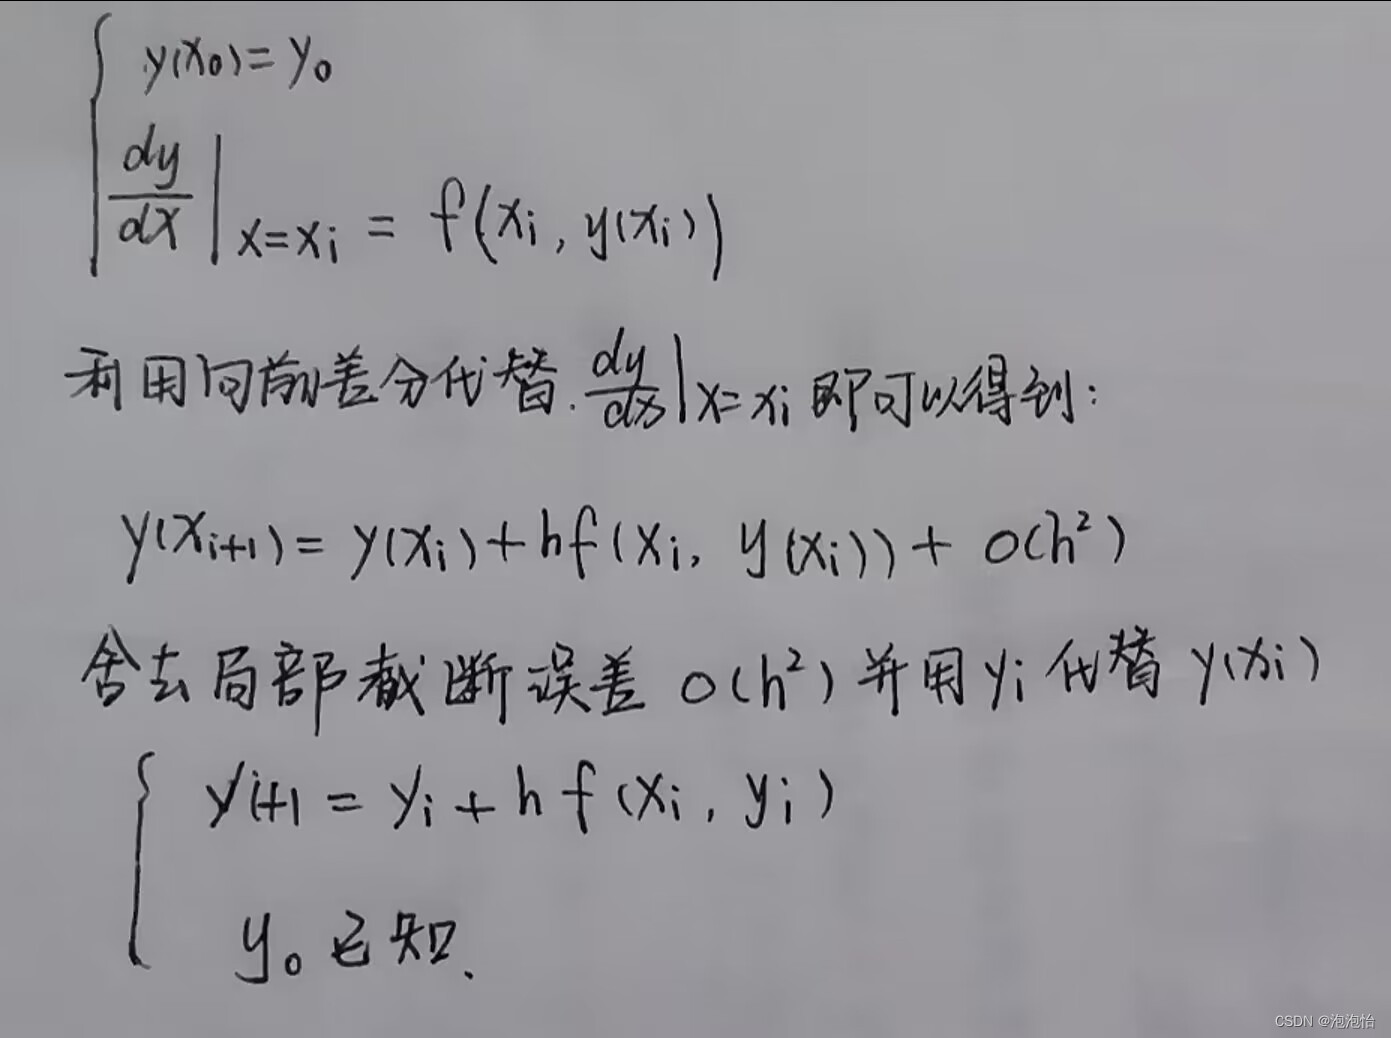 y(x₀)=y₀
dy/dx|x=xᵢ = f(xᵢ, y(xᵢ))
利用向前差分代替.dy/dx|x=xᵢ即可以得到:
y(xᵢ₊₁)=y(xᵢ)+hf(xᵢ, y(xᵢ))+ o(h²)
舍去局部截断误差 o(h²)并用yᵢ代替y(xᵢ)
yᵢ₊₁=yᵢ+hf(xᵢ, yᵢ)
y₀已知.
CSDN @泡泡怡